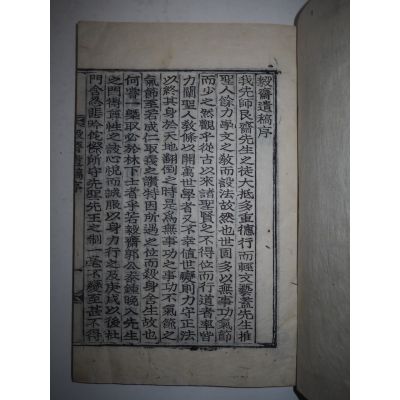 毅齋遺稿序
我先師艮齋先生之徒大抵多重德行而輕文藝蓋先生推
聖人餘力學文之敎而設法故然也世固多以無事功氣節
而少之然觀乎從古以來諸聖賢之不得位而行道者率皆
力闡聖人敎條以開萬世學者又不幸値世變則力守正法
以終其身於天地翻倒之時是爲無事功之事功不氣節之
氣節至若成仁取義之讚特因所遇之位而殺身舍生故也
何嘗一槩取必於林下士者乎若毅齋郭公泰鍾晚入先生
之門得性之該心悅而誠服以身力行之及庚戌以後杜
門含忍吟佗傺所守先聖先王之制一不變至甚不得
毅齋遺稿序